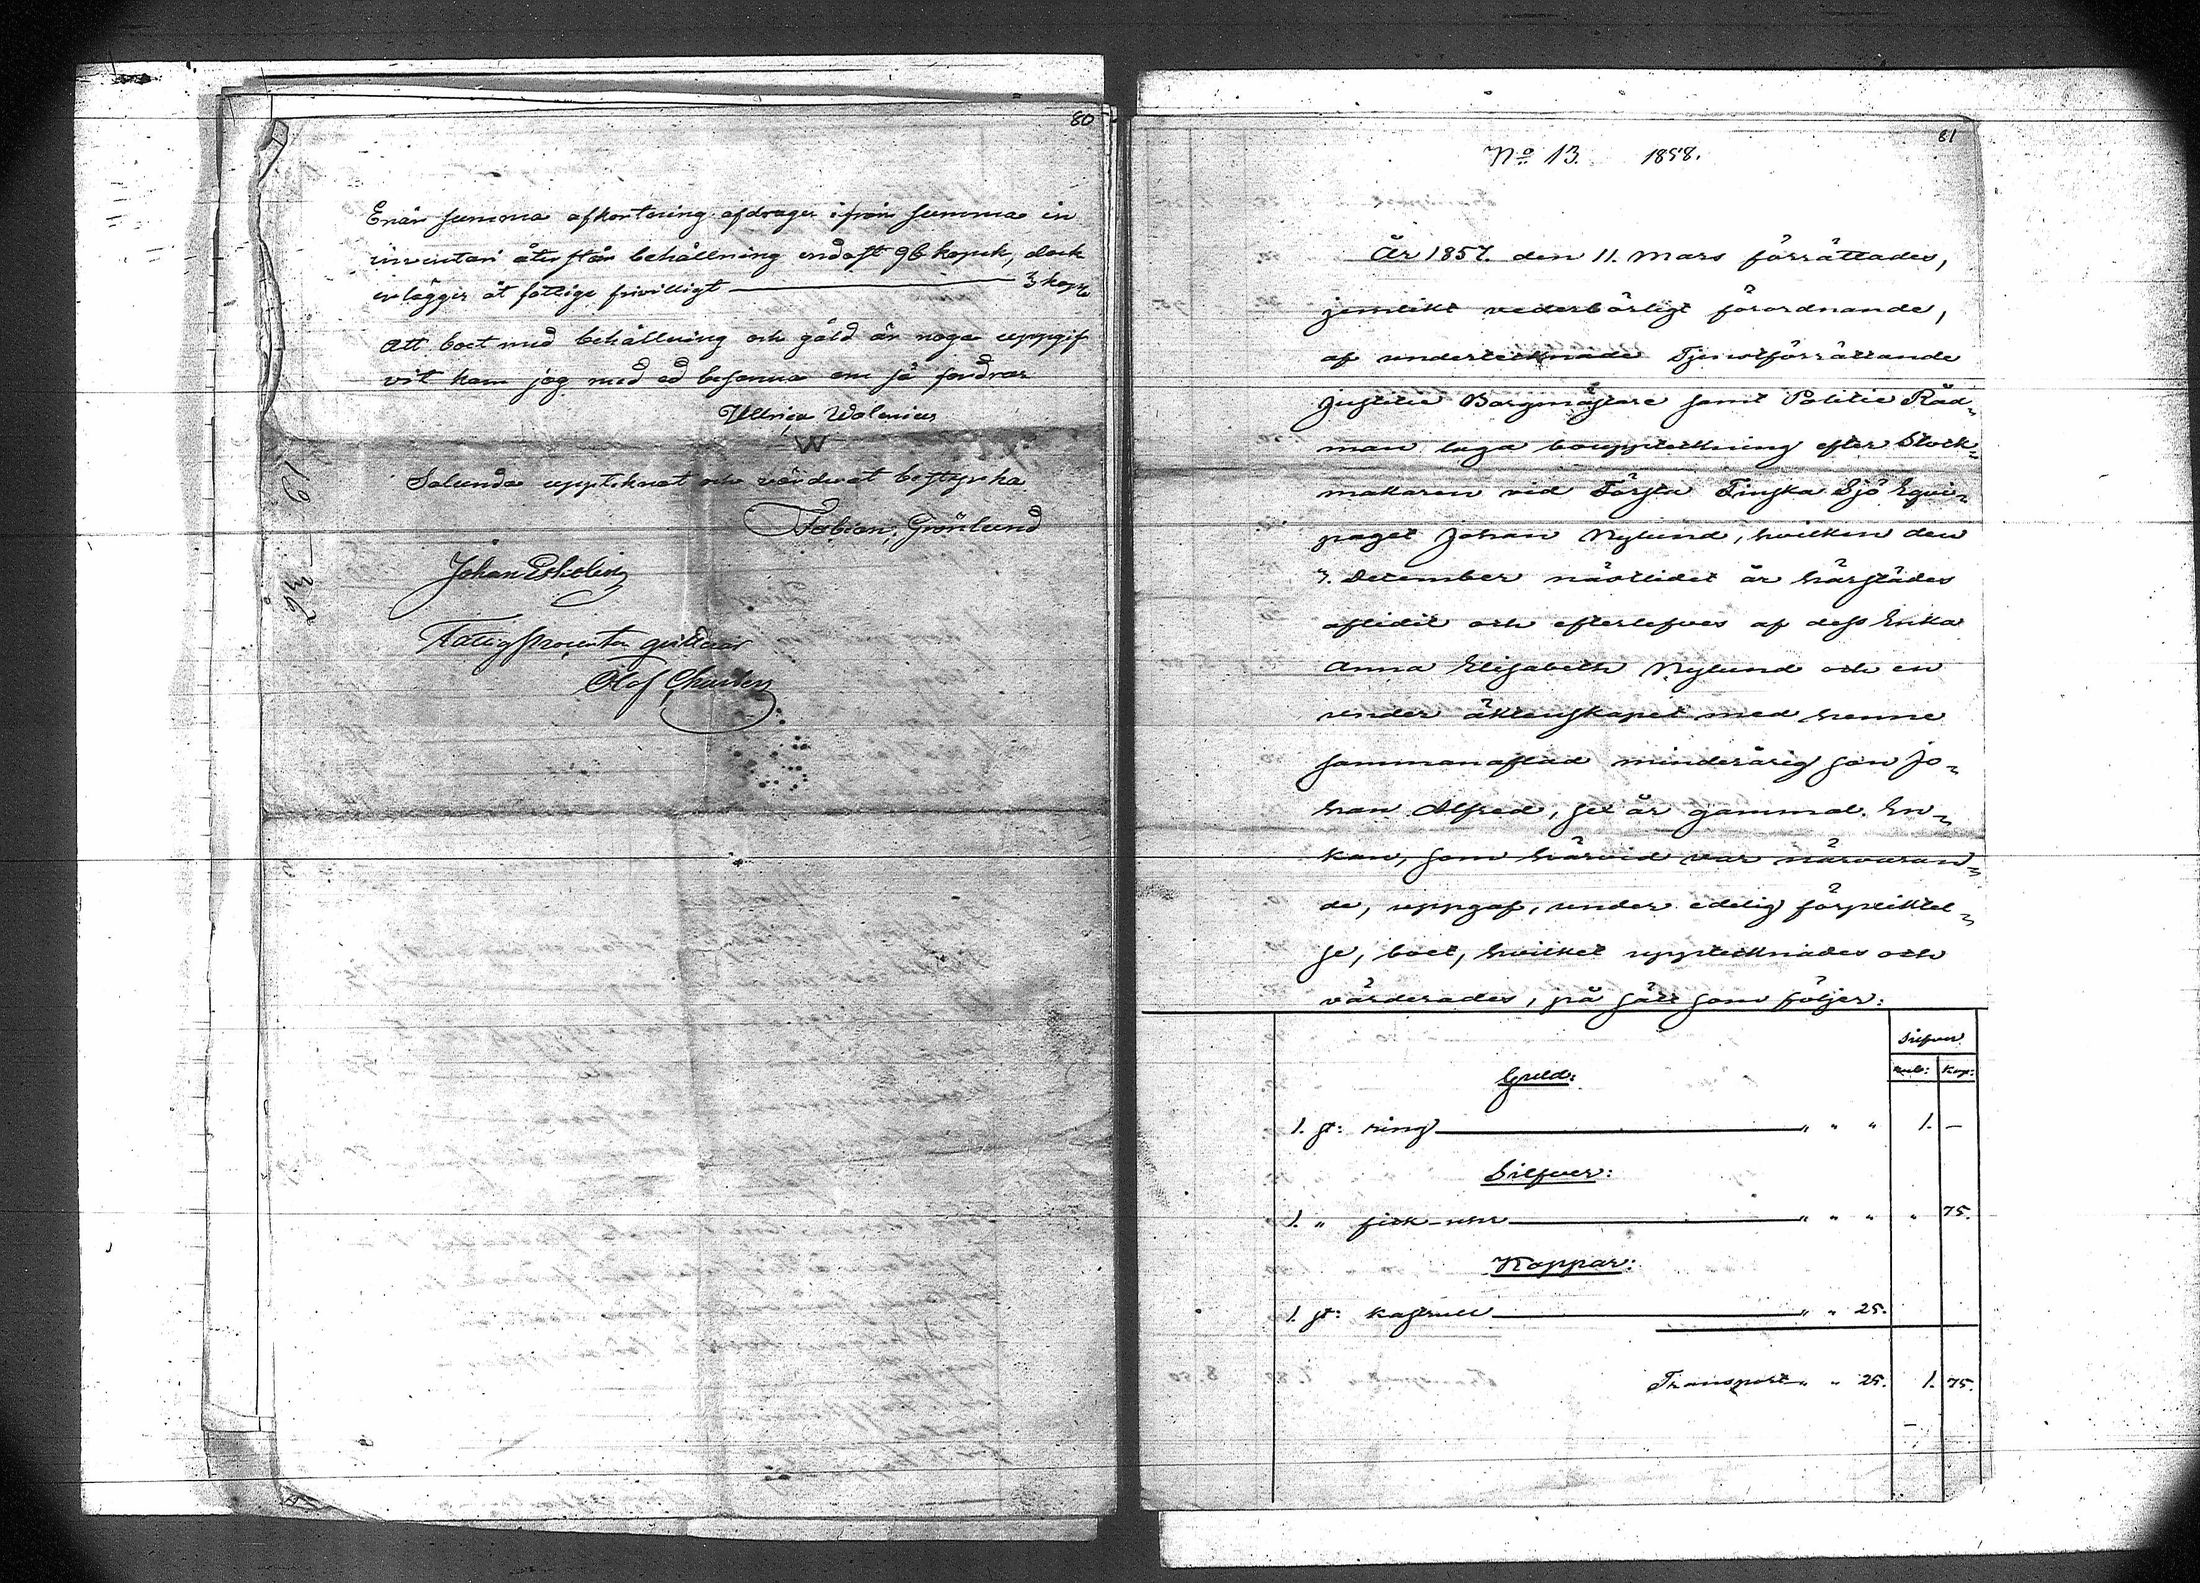 80
Enär summa afkortning afdrages ifrån summa in
inventari återstår behållning endast 96 kopek, dock
erlägges åt fattige frivilligt — 3 kop.
Att boet med behållning och gäld är noga uppgif
vit kan jag med ed besanna om så fordras
Ullrica Walenius
W
Salunda uppteknat och värderat bestyrka
Fabian Grönlund
Johan
Fattigprocenten quitteras
Olof
81
No 13. 1858.
År 1857. den 11. Mars förrättades,
jemlikt vederbörligt förordnande,
af undertecknade Tjenstförrättande
Justitie Borgmästare samt Politie Råd-
man laga bouppteckning efter Stock-
makaren vid Första Finska Sjö Equi-
paget Johan Nylund, hvilken den
7. December näSTlidet år härstädes
aflidit och efterlefves af dess Enka
Anna Elisabeth Nylund och en
under äktenskapet med henne
sammanaflad minderårig son Jo-
han Alfred, sex år gammal. En-
kan, som härvid var närvaran-
de, uppgaf, under edelig förpliktel-
se, boet, hvilket upptecknades och
värderades, på sätt som följer:
Silfver
Rub: Kop:
Guld:
1. st: ring — " " " 1. —
Silfver:
1. " fick-ur — " " " " 75.
Koppar:
1. st: kastrull — " " 25.
Transport " " 25. 1. 75.